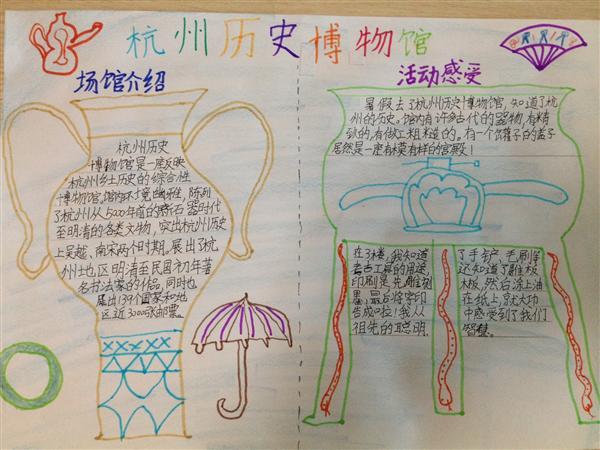 杭州历史博物馆
场馆介绍
杭州历史
博物馆是一座反映
杭州乡土历史的综合性
博物馆,馆内环境幽雅,陈列
了杭州从5000年前的新石器时代
至明清的各类文物,突出杭州历史
上吴越、南宋两个时期。展出了杭
州地区明清至民国初年著
名书法家的作品,同时也
展出139个国家和地
区近3000张邮票。
活动感受
暑假去了杭州历史博物馆,知道了杭
州的历史。馆内有许多古代的器物,有精
致的,有做工粗糙的。有一个罐子的盖子
居然是一座有模有样的宫殿!
在3楼,我知道
考古工具的用途,
印刷是先雕刻
墨,最后将字印
告成啦!我从
祖先的聪明、
了手铲、毛刷等
还知道了雕板
木板,然后涂上油
在纸上,就大功
中感受到了我们
智慧。